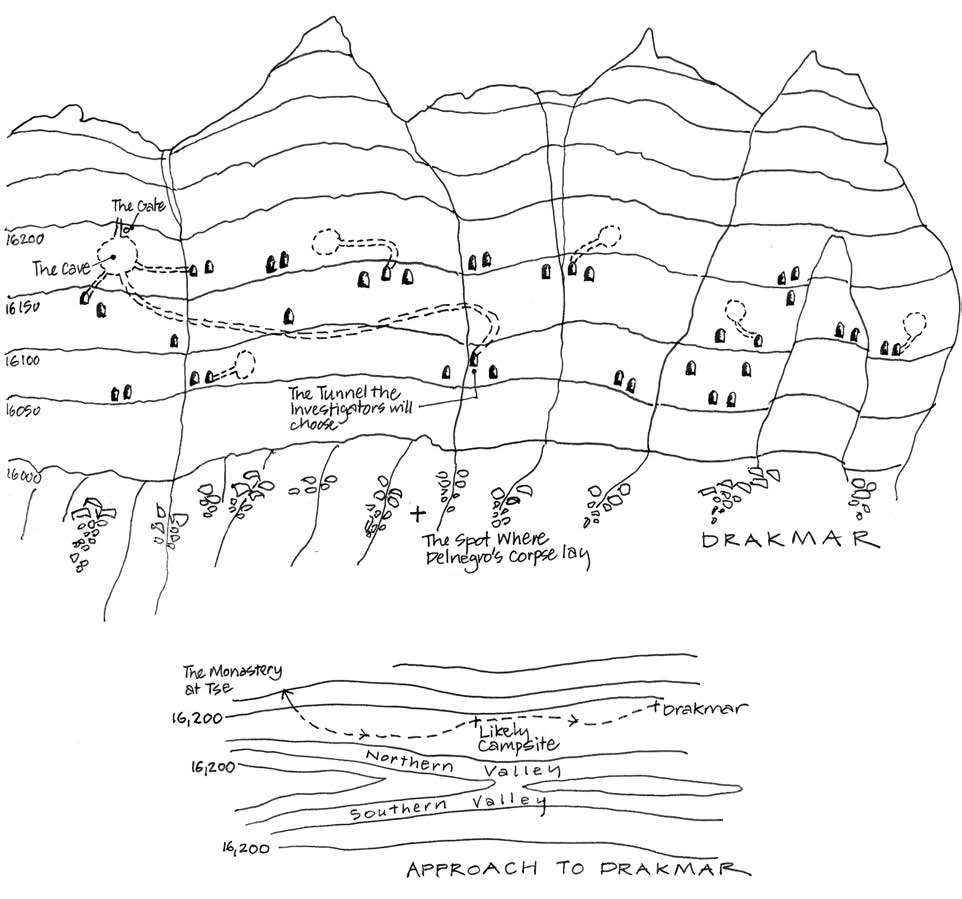 The Gate
16200
The Cave
16150
16100
16050
The Tunnel the
Investigators will
choose
16000
The Spot Where
Delnegro's Corpse lay
DRAKMAR
The Monastery
at Tse
16,200
Drakmar
Likely
Campsite
16,200
Northern Valley
Southern Valley
16,200
APPROACH TO DRAKMAR